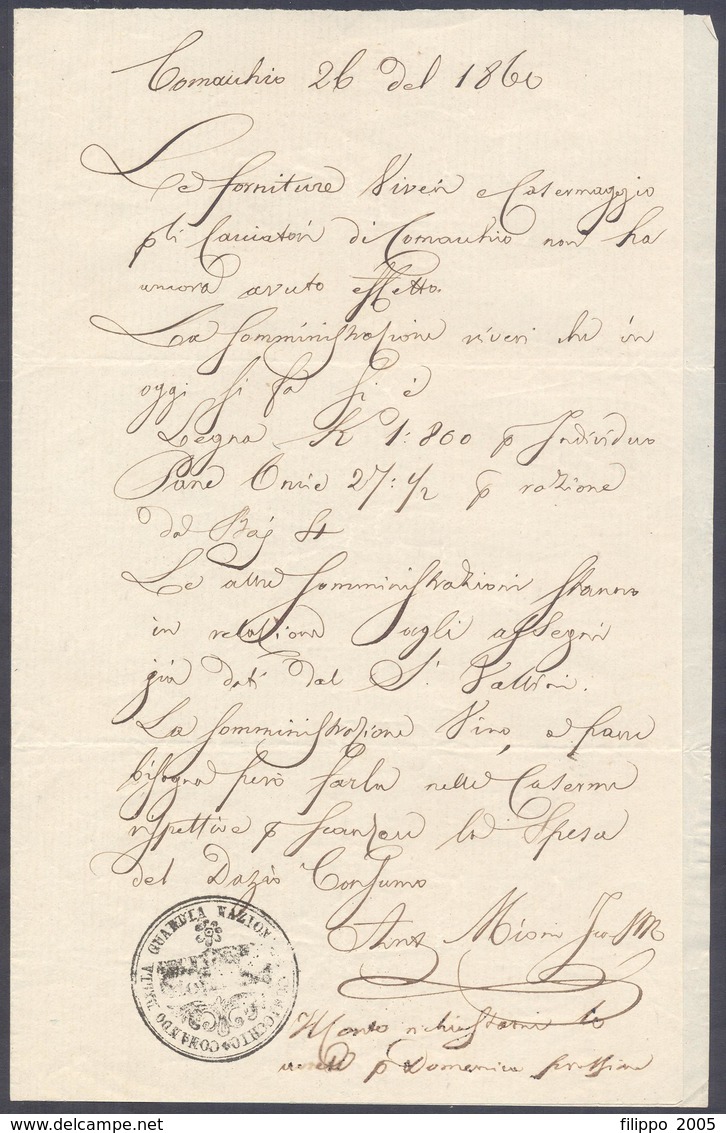 Comacchio 26 del 1860
Le forniture Viveri e Casermaggio
p li Cacciatori di Comacchio non ha
ancora avuto effetto.
La Somministrazione viveri che in
oggi si fa si è
Legna K 1:800 p Individuo
Pane Oncie 27:1/2 p razione
da Baj 4
Le altre Somministrazioni stanno
in relazione agli assegni
già dati dal S.
La Somministrazione Vino, e pane
bisogna però farla nelle Caserme
rispettive p scanzare la Spesa
del Dazio Consumo
Ant Mioni
COMANDO DELLA GUARDIA NAZION COMACCHIO
p Domenica prossima
filippo 2005